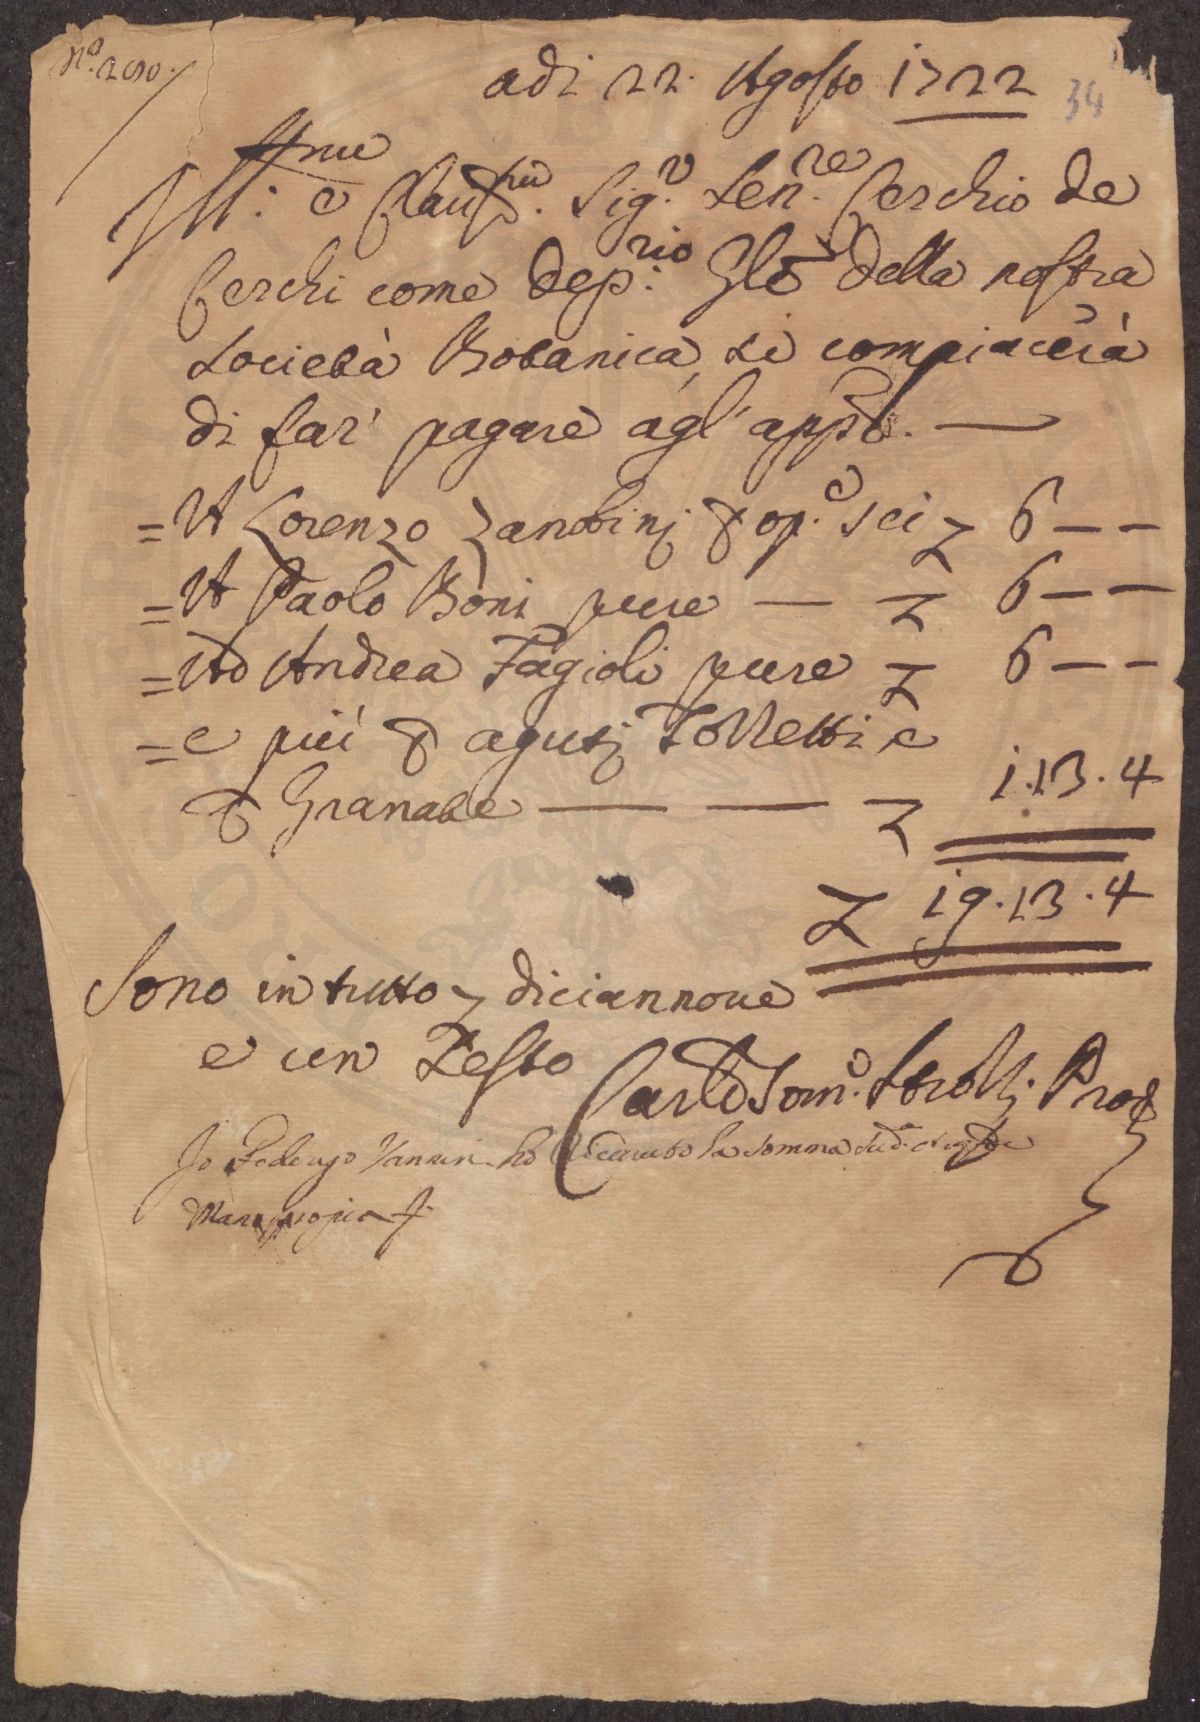 N.º 200.
adi 22. Agosto 1722
34
Ill.mo e Clariss.mo Sig.r Sen.re Cerchio de
Cerchi come Dep.rio Gle della nostra
Società Botanica, si compiacerà
di far' pagare agl' app.ti
= A Lorenzo Zanobinj p op.e sei £ 6 – –
= A Paolo Boni pure — £ 6 – –
= Ad Andrea Fagioli pure £ 6 – –
= e più p agutj Torletti e
p Granate — — £ 1.13.4
£ 19.13.4
Sono in tutto £ diciannove
e un Testo
Carlo Tom.o Prov
Io Federigo Vannini ho riceuuto la somma sud.a
Mano propia